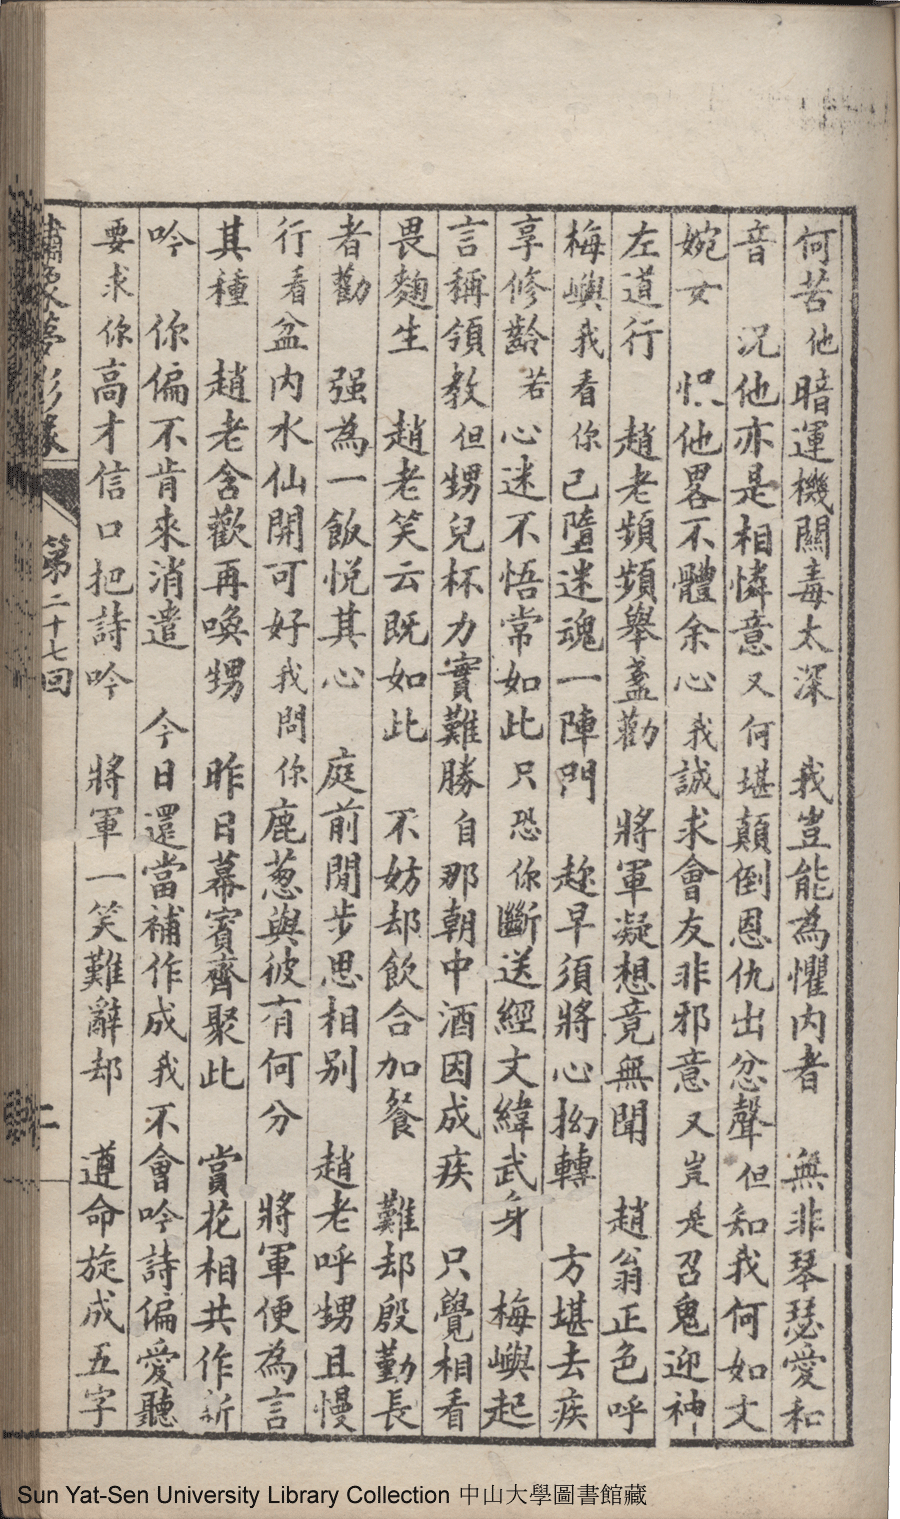 何苦他暗運機關毒太深　我豈能為懼内者　無非琴瑟愛和
音　況他亦是相憐意又何堪顛倒恩仇出忿聲但知我何如文
婉女　怾他畧不體余心我誠求會友非邪意又豈是召鬼迎神
左道行　趙老頻頻舉盞勸　將軍凝想竟無聞　趙翁正色呼
梅嶼我看你已墮迷魂一陣門　趂早須將心拗轉　方堪去疾
享修齡若心迷不悟常如此只恐你斷送經文緯武身　梅嶼起
言稱領教但甥兒杯力實難勝自那朝中酒因成疾　只覺相看
畏麯生　趙老笑云既如此　不妨却飲合加餐　難却殷勤長
者勸　强為一飯悦其心　庭前閒步思相别　趙老呼甥且慢
行看盆内水仙開可好我問你鹿葱與彼有何分　將軍便為言
其種　趙老含歡再喚甥　昨日幕賓齊聚此　賞花相共作新
吟　你偏不肯來消遣　今日還當補作成我不會吟詩偏愛聽
要求你高才信口把詩吟　將軍一笑難辭却　遵命旋成五字
繡像夢影緣　第二十七回　二
Sun Yat-Sen University Library Collection 中山大學圖書館藏